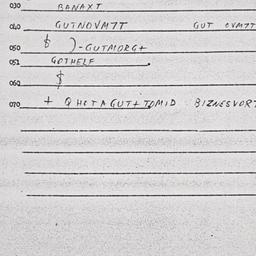 030 BANAXT
040 GUTNOVMTT GUT OVMTT
050 $ )-GUTMORG+
051 GOTHELF
060 $
070 + QHOTAGUT+TOMID BIZNESVORT